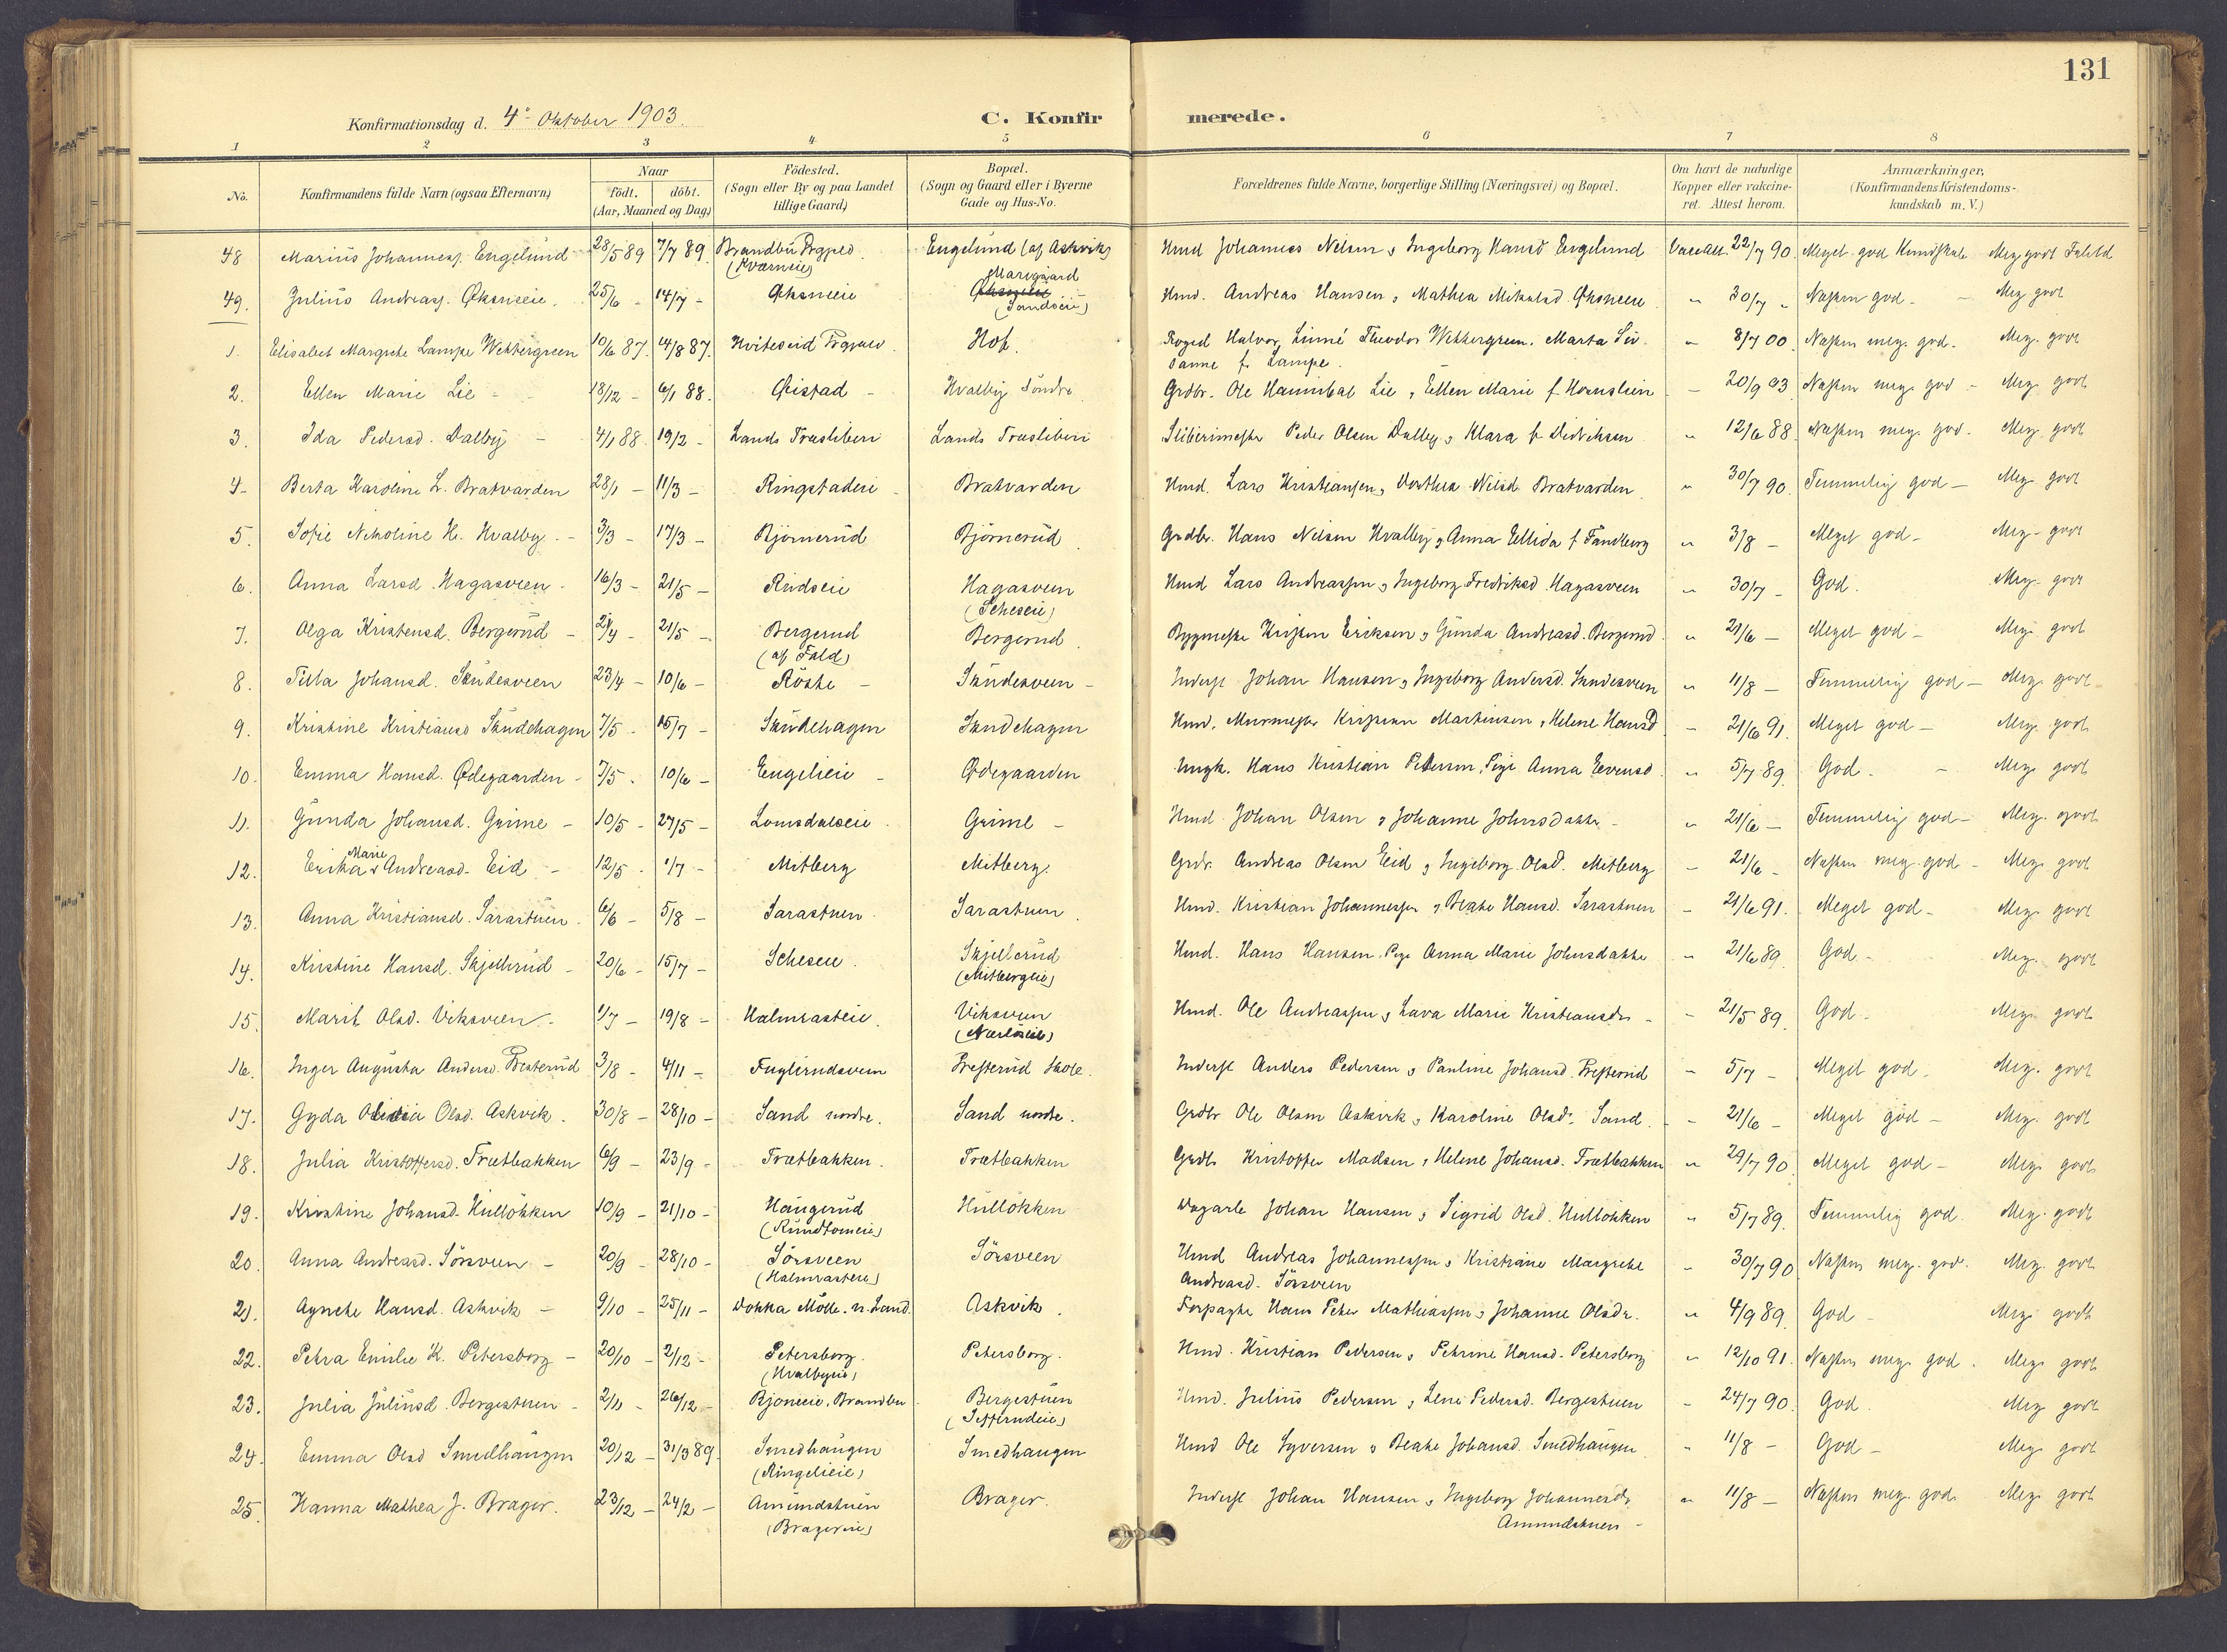 131
Konfirmationsdag d. 4de Oktober 1903.
C. Konfirmerede.
1 2 3 4 5 6 7 8
No. Konfirmandens fulde Navn (ogsaa Efternavn) Naar födt. döbt. (Aar, Maaned og Dag) Födested. (Sogn eller By og paa Landet tillige Gaard) Bopæl. (Sogn og Gaard eller i Byerne Gade og Hus-No. Forældrenes fulde Navne, borgerlige Stilling (Næringsvei) og Bopæl. Om havt de naturlige Kopper eller vakcineret. Attest herom. Anmærkninger, (Konfirmandens Kristendomskundskab m. V.)
48 Marius Johanness. Engelund 28/5 89 7/7 89. Brandbu Prgjeld. (Kværneie) Engelund (af Askvik) Hmd Johannes Nelsen & Ingeborg Hansd Engelund Vaccatt. 22/7 90. Meget god Kundskab Meg godt Forhold
49. Julius Andreass. Øksneeie. 25/6 - 14/7 - Øksneeie Marigaard (Sandseie) Hmd. Andreas Hansen & Mathea Mikalsd. Øksneeie " 30/7 " Næsten god - Meg godt
1. Elisabet Margrete Lampe Wettergreen 10/6 87. 14/8 87. Hviteseid Prgjeld. Hof. Foged Halvor Linné Theodor Wettergreen. Marta Susanne f. Lampe. " 8/7 00. Næsten meg. god. Meg. godt
2. Ellen Marie Lie - 18/12 - 6/1 88. Øistad - Hvalby Söndre Grdbr. Ole Hannibal Lie, Ellen Marie f Hornslien - 20/9 03. Næsten meg. god - Meg. godt
3. Ida Pedersd. Dalby - 4/1 88. 19/2 - Lands Træsliberi Lands Træsliberi Slibermester Peder Olsen Dalby & Klara f. Didriksen " 12/6 88. Næsten meg. god. Meg. godt
4. Berta Karoline L. Bratvarden 28/1 - 11/3 - Ringstadeie - Bratvarden Hmd. Lars Kristiansen, Dorthea Nilsd. Bratvarden. " 30/7 90. Temmelig god - Meg. godt
5. Sofie Nikoline H. Hvalby - 3/3 - 17/3 - Bjørnerud Björnerud Grdbr. Hans Nelsen Hvalby & Anna Ellida f. Sandberg " 3/8 - Meget god - Meg. godt
6. Anna Larsd. Hagasveen - 16/3 - 21/5 - Rudseie Hagasveen (Scheseie) Hmd Lars Andreassen & Ingeborg Fredriksd. Hagasveen " 30/7 - God. Meg. godt
7. Olga Kristensd. Bergerud - 21/5 - Bergerud (af Fald) Bergerud. Bygmester Kristen Eriksen & Gunda Andreasd. Bergerud " 21/6 - Meget god - Meg. godt
8. Tilla Johansd. Skndesveen 23/4 - 10/6 - Röste - Skndesveen - Inderst Johan Hansen & Ingeborg Andersd. Skndesveen " 11/8 - Temmelig god - Meg. godt -
9. Kristine Kristiansd Skndehagen 7/5 - 15/7 - Skndehagen Skndehagen Hmd. Murmester Kristian Martinsen, Helene Hansd. - 21/6 91. Meget god - Meg. godt
10. Emma Hansd. Ødegaarden - 7/5. 10/6 - Engelieie - Ødegaarden Ungk. Hans Kristian Pedersen, Pige Anna Evensd. " 5/7 89. God. - Meg. godt
11. Gunda Johansd. Grime - 10/5 - 27/5 - Lomsdalseie. Grime - Hmd. Johan Olsen & Johanne Johnsdatter - " 21/6 - Temmelig god - Meg. godt
12. Erika Marie Andreasd. Eid - 12/5 - 1/7 - Mitberg Mitberg. Grdr. Andreas Olsen Eid & Ingeborg Olsd. Mitberg - 21/6 - Næsten meg. god - Meg. godt
13. Anna Kristiansd. Sarastuen. 6/6 - 5/8 - Sarastuen. Sarastuen. Hmd. Kristian Johannessen & Beate Hansd. Sarastuen - 21/6 91. Meget god - Meg. godt
14. Kristine Hansd. Skjellerud - 20/6 - 15/7 - Scheseie. Skjellerud (Mitbergeie) Hmd. Hans Hansen. Pige Anna Marie Johnsdatter " 21/6 89. God - Meg. godt
15. Marit Olsd. Viksveen - 1/7 - 19/8 - Halmrasteie. Viksveen (Nærløseie) Hmd. Ole Andreassen & Lava Marie Kristiansdr - - 21/5 89. God - Meg. godt
16. Inger Augusta Andersd. Presterud 3/8 - 4/11 - Fuglerudsveen Presterud Skole. Inderst Anders Pedersen & Pauline Johansd. Presterud - 5/7 - Meget god. Meg. godt
17. Gyda Olsd. Askvik. 30/8 - 28/10 - Sand nordre. Sand nordre. Grdbr Ole Olsen Askvik & Karoline Olsdr. Sand. - 21/6 - Meget god - Meg. godt
18. Julia Kristoffersd. Trætbakken 6/9 - 23/9 - Trætbakken. Trætbakken Grdbr Kristoffer Madsen, Helene Johansd. Trætbakken " 29/7 90. Meget god - Meg. godt
19. Kristine Johansd. Hullökken 10/9 - 21/10 - Haugerud (Rundtomeie) Hullökken Dagarb. Johan Hansen & Sigrid Olsd. Hullökken " 5/7 89. Temmelig god. Meg. godt
20. Anna Andreasd. Sörsveen - 20/9 - 28/10 - Sörsveen (Halmrasteie) Sörsveen Hmd Andreas Johannessen & Kristiane Margrete Andreasd. Sörsveen - 30/7 90 Næsten meg. god. Meg. godt
21. Agnete Hansd. Askvik - 9/10 - 25/11 - Dokka Mölle. n. Land. Askvik. Forpagter Hans Peter Mathiassen & Johanne Olsdr. " 4/9 89. God - Meg. godt
22. Petra Emilie K. Petersborg - 20/10 - 2/12 - Petersborg. (Hvalbyeie) Petersborg. Hmd. Kristian Pedersen & Petrine Hansd. Petersborg " 12/10 91. Næsten meg. god. Meg. godt
23. Julia Juliusd. Bergestuen - 2/11 - 26/12 - Bjoneeie, Brandbu. Bergestuen (Tefferudeie) Hmd. Julius Pedersen, Lene Pedersd. Bergestuen - 24/7 90. God. Meg. godt
24. Emma Olsd Smedhaugen 20/12 - 31/3 89. Smedhaugen (Ringelieie) Smedhaugen Hmd Ole Syversen & Beate Johansd. Smedhaugen " 11/8 - God - Meg. godt
25. Hanna Mathea J. Brager. 23/12 - 24/2 - Amundstuen (Bragereie) Brager. Inderst Johan Hansen & Ingeborg Johannesdr. Amundstuen - " 11/8 - Næsten meg. god. Meg. godt